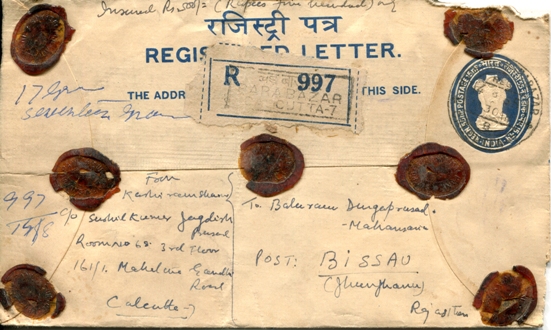 Insured Rs 500/- (Rupees five hundred) only
रजिस्ट्री पत्र
REGISTERED LETTER.
THE ADDR THIS SIDE.
R 997
BARABAZAR
CUTTA-7
17 gm
seventeen gram
997
19/8
From
c/o Sushil Kumar Jagdish
Prasad
Room no 68 3rd Floor
161/1. Mahatma Gandhi
Road
Calcutta-7
To Baluram Durgaprasad
-Mahansaria
POST: BISSAU
(Jhunjhunu)
Rajasthan